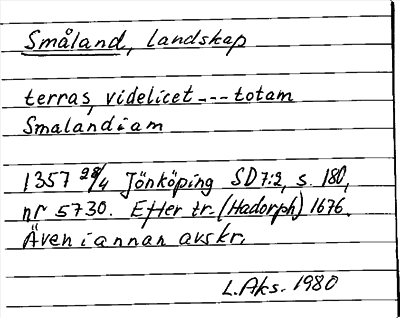 Småland, landskap
terras, videlicet --- totam
Smalandiam
1357 28/4 Jönköping SD 7:2, s. 180,
nr 5730. Efter tr. (Hadorph) 1676.
Även i annan avskr.
L. Aks. 1980